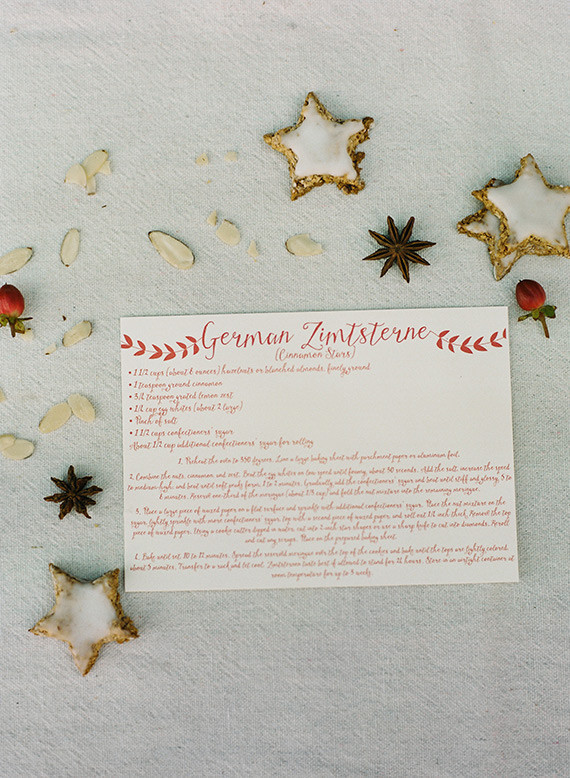 German Zimtsterne
(Cinnamon Stars)
• 1 1/2 cups (about 6 ounces) hazelnuts or blanched almonds, finely ground
• 1 teaspoon ground cinnamon
• 3/4 teaspoon grated lemon zest
• 1/4 cup egg whites (about 2 large)
• Pinch of salt
• 1 1/2 cups confectioners' sugar
About 1/2 cup additional confectioners' sugar for rolling
1. Preheat the oven to 350 degrees. Line a large baking sheet with parchment paper or aluminum foil.
2. Combine the nuts, cinnamon, and zest. Beat the egg whites on low speed until foamy, about 30 seconds. Add the salt, increase the speed
to medium-high, and beat until soft peaks form, 1 to 2 minutes. Gradually add the confectioners' sugar and beat until stiff and glossy, 5 to
8 minutes. Reserve one third of the meringue (about 2/3 cup) and fold the nut mixture into the remaining meringue.
3. Place a large piece of waxed paper on a flat surface and sprinkle with additional confectioners' sugar. Place the nut mixture on the
sugar, lightly sprinkle with more confectioners' sugar, top with a second piece of waxed paper, and roll out 1/4 inch thick. Remove the top
piece of waxed paper. Using a cookie cutter dipped in water, cut into 2 inch star shapes or use a sharp knife to cut into diamonds. Reroll
and cut any scraps. Place on the prepared baking sheet.
4. Bake until set, 10 to 12 minutes. Spread the reserved meringue over the top of the cookies and bake until the tops are lightly colored,
about 5 minutes. Transfer to a rack and let cool. Zimtsterne taste best if allowed to stand for 24 hours. Store in an airtight container at
room temperature for up to 3 weeks.